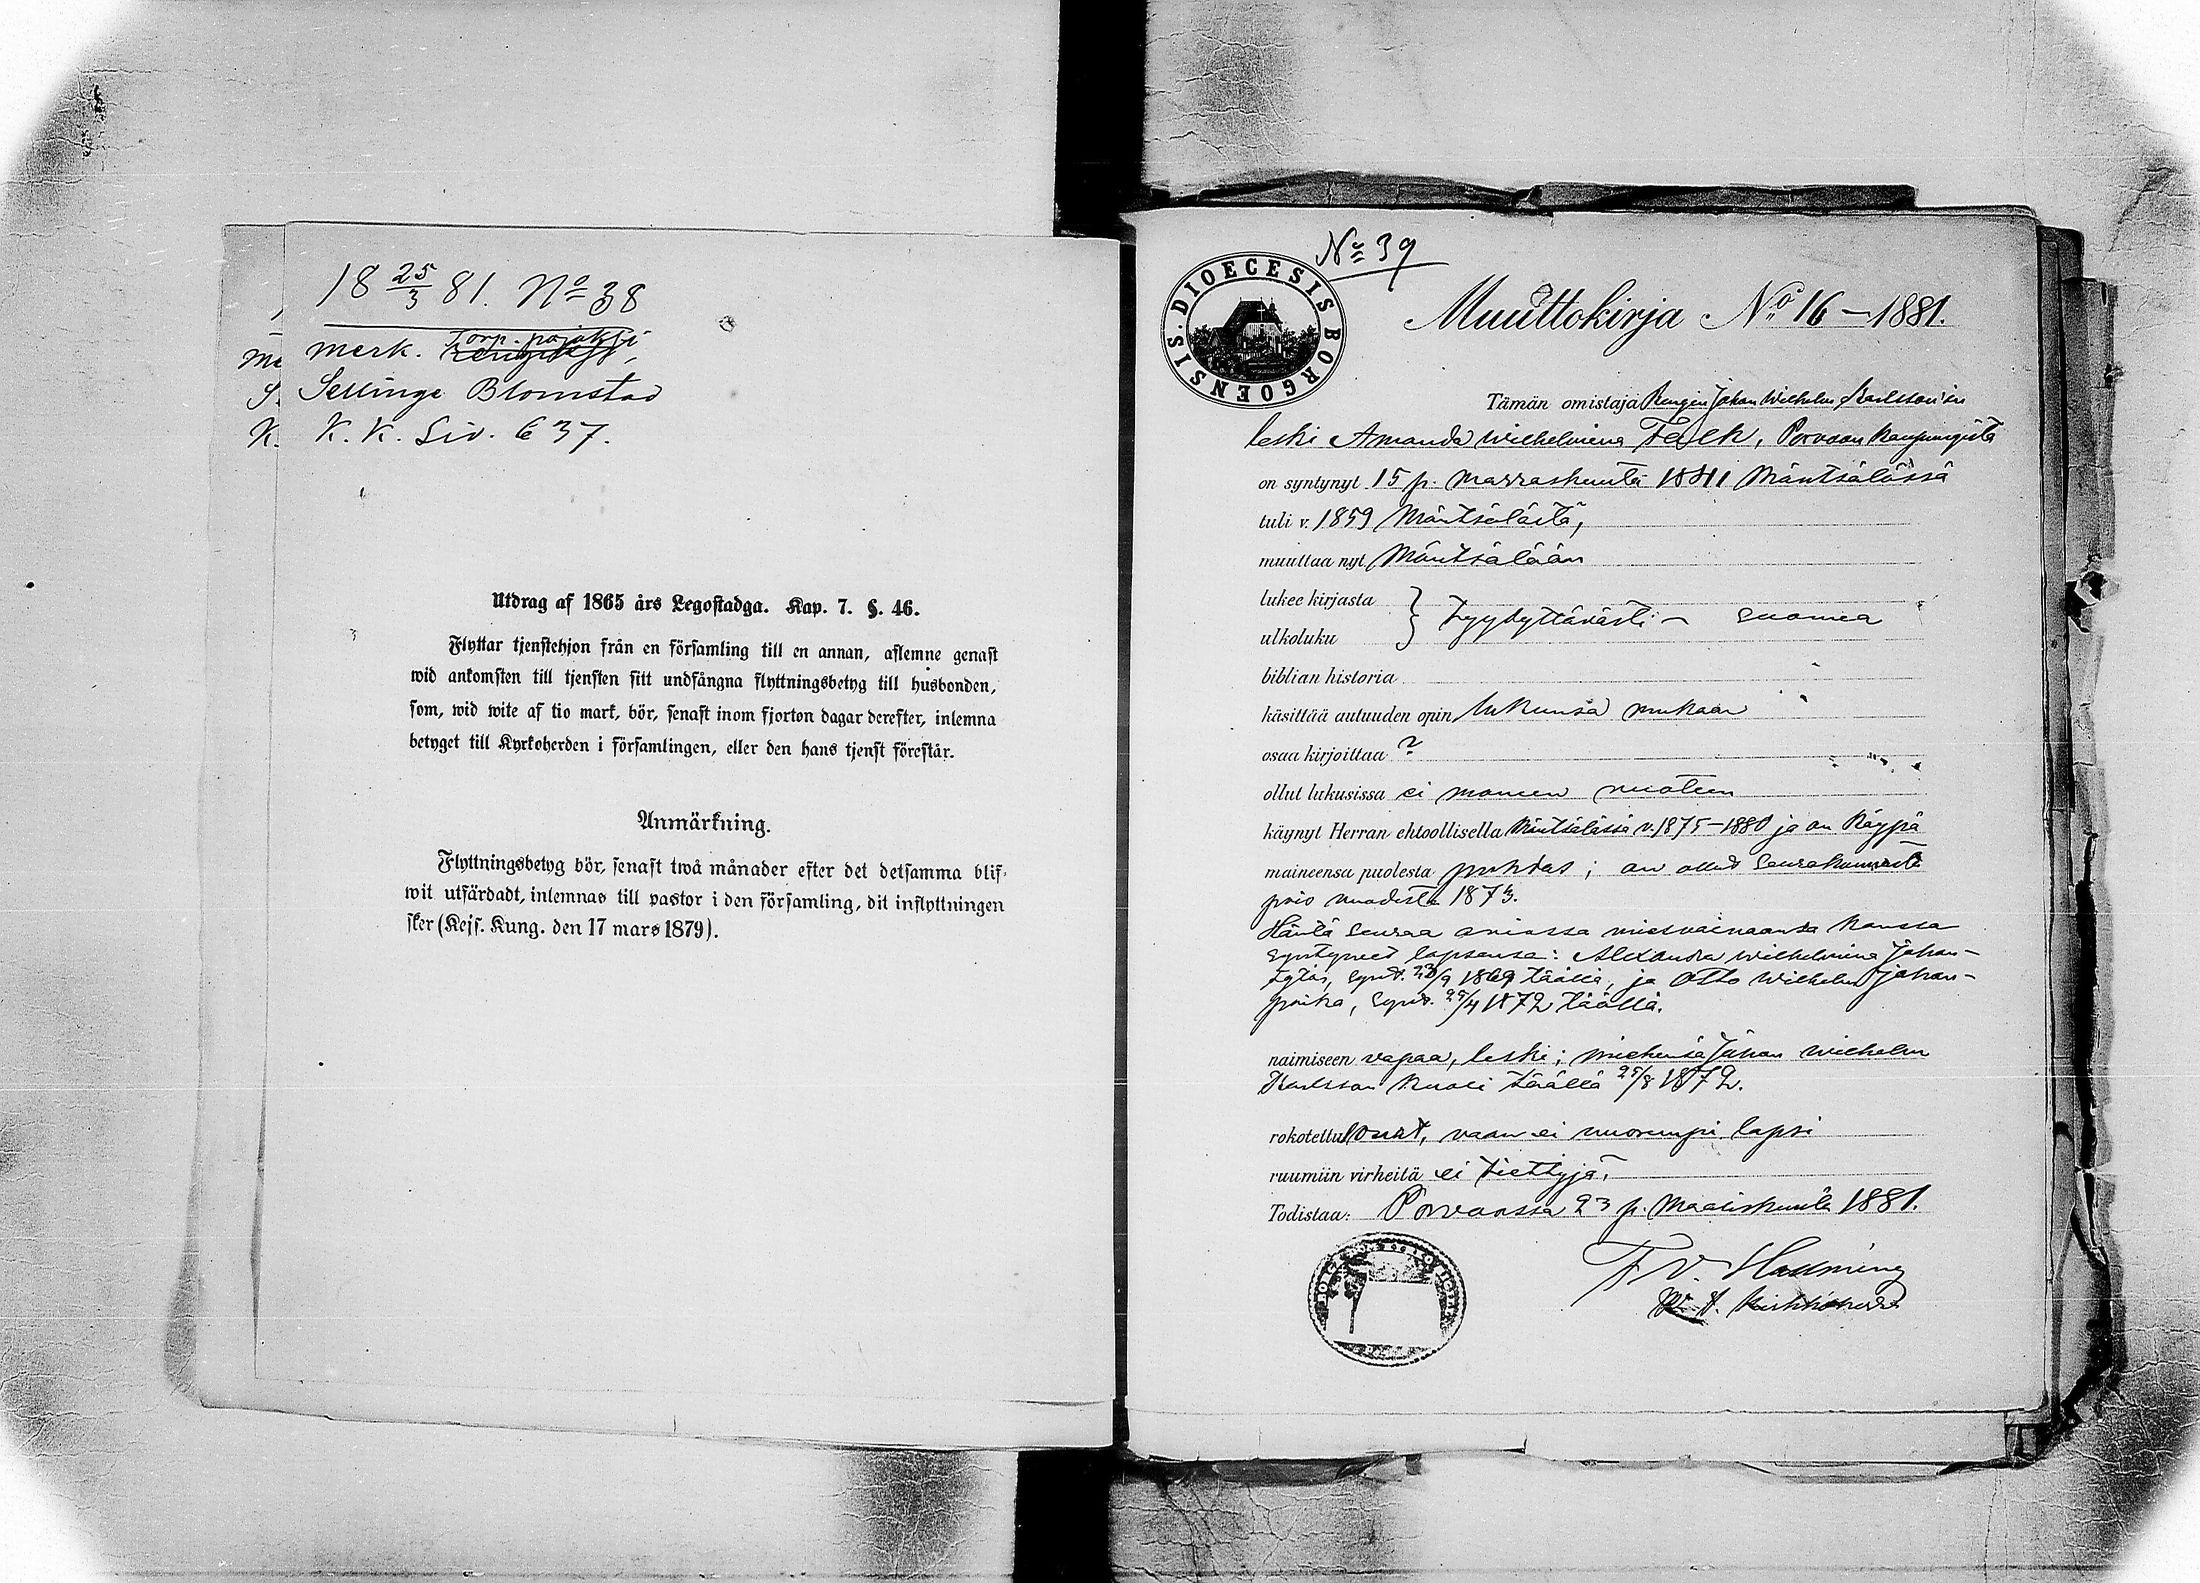 18 25/3 81. No 38
merk. Torp. pojaksi
Sellinge Blomstad
K. K. Siv. 637.
Me
S.
K.
Utdrag af 1865 års Legostadga. Kap. 7. §. 46.
Flyttar tjenstehjon från en församling till en annan, aflemne genast
wid ankomsten till tjensten sitt undfångna flyttningsbetyg till husbonden,
som, wid wite af tio mark, bör, senast inom fjorton dagar derefter, inlemna
betyget till Kyrkoherden i församlingen, eller den hans tjenst förestår.
Anmärkning.
Flyttningsbetyg bör, senast twå månader efter det detsamma blif-
wit utfärdadt, inlemnas till pastor i den församling, dit inflyttningen
sker (Kejs. Kung. den 17 mars 1879).
No 39
DIOECESIS BORGOENSIS.
Muuttokirja No 16 – 1881.
Tämän omistaja Rengin Johan Wilhelm Karlsson'in
leski Amanda Wilhelmina Falck, Porvoon kaupungista
on syntynyt 15 p. marraskuuta 1841 Mäntsälässä
tuli v. 1859 Mäntsälästä,
muuttaa nyt Mäntsälään
lukee kirjasta } tyydyttävästi – suomea
ulkoluku
biblian historia
käsittää autuuden opin lukunsa mukaan
osaa kirjoittaa ?
ollut lukusissa ei moneen vuoteen
käynyt Herran ehtoollisella Mäntsälässä v. 1875–1880 ja on käypä
maineensa puolesta puhdas; on ollut seurakunnasta
pois vuodesta 1873.
Häntä seuraa aviossa miesvainaansa kanssa
syntyneet lapsensa: Alexandra Wilhelmina Johan-
tytär, synt. /9 1869 täällä, ja Otto Wilhelm Johan-
poika, synt. 25/4 1872 täällä.
naimiseen vapaa, leski; miehensä Johan Wilhelm
Karlsson kuoli täällä 25/8 1872.
rokotettu ovat, vaan ei nuorempi lapsi
ruumiin virheitä ei tiettyjä.
Todistaa: Porvoossa 23 p. Maaliskuuta 1881.
F. V. Hallming
V. t. Kirkkoherra